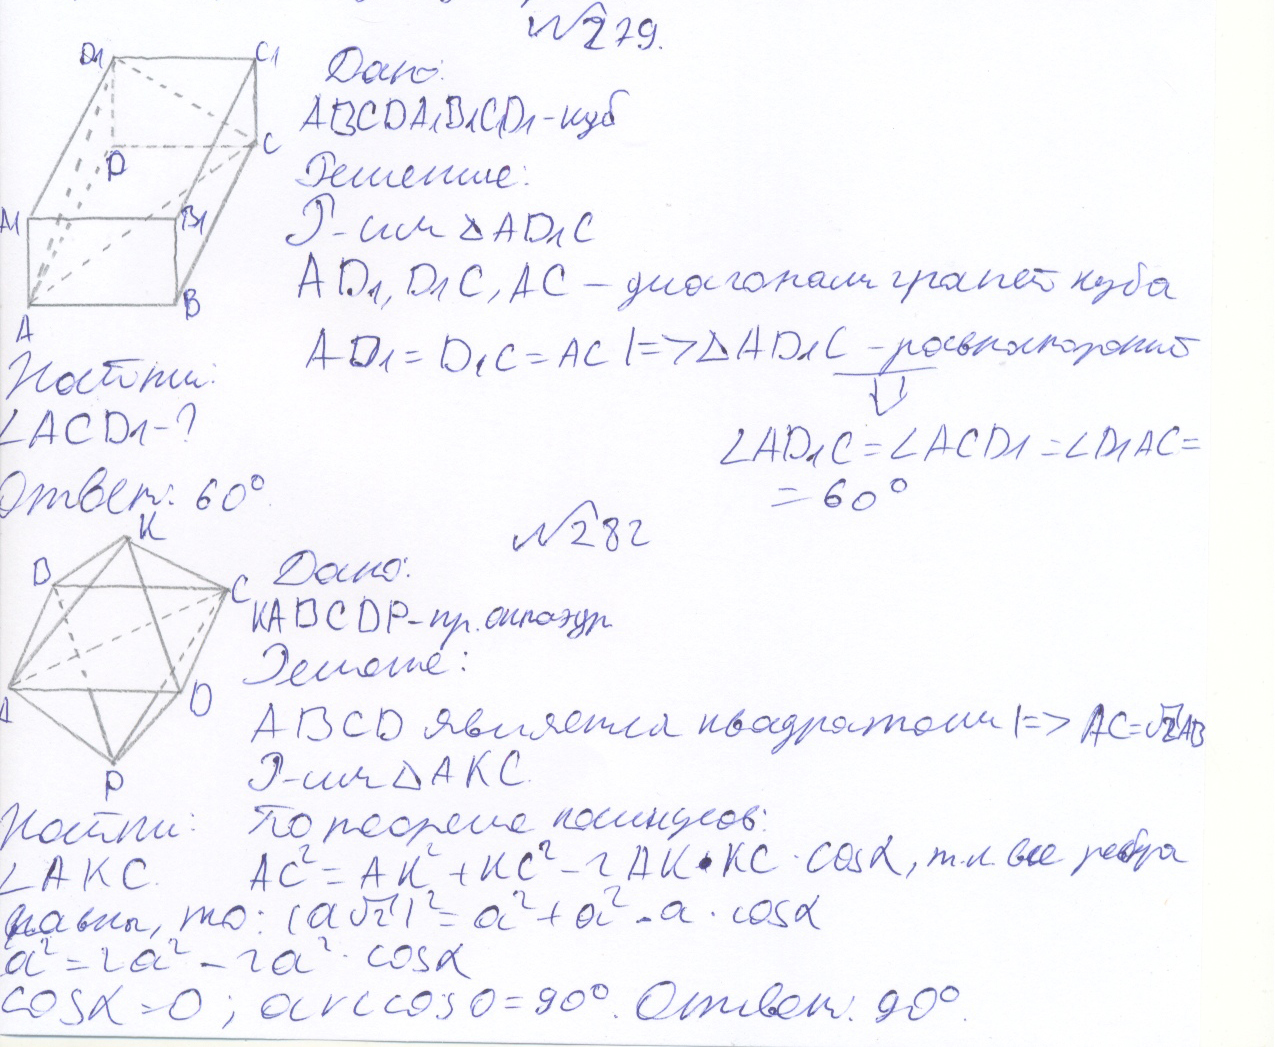 №279.
D1 C1
Дано:
ABCDA1B1C1D1-куб
D C
Решение:
Р-им △AD1C
A1 B1
AD1, D1C, AC – диагонали граней куба
A B
AD1 = D1C = AC |=> △AD1C – равносторонний
Найти:
∠ACD1-?
∠AD1C = ∠ACD1 = ∠D1AC =
= 60°
Ответ: 60°.
№282
K
B C
Дано:
KABCDP-пр. октаэдр
Решение:
A D
ABCD является квадратом |=> AC=√2AB
P
Р-им △AKC.
Найти:
∠AKC.
По теореме косинусов:
AC² = AK² + KC² – 2AK•KC · cosα, т.к все ребра
равны, то: (a√2)² = a² + a² - a · cosα
a² = 2a² – 2a² · cosα
cosα = 0 ; arccos0 = 90°. Ответ: 90°.